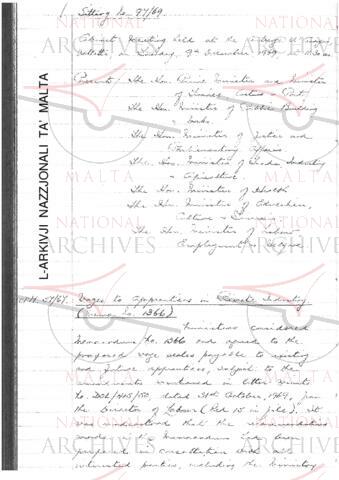 Sitting No. 77/69
Cabinet Meeting held at the Auberge
Valletta, on Tuesday, 9th December 1969,
Present: The Hon. Prime Minister and Minister
of Finance Customs & Port
The Hon. Minister of Public Building
& Works
The Hon. Minister of Justice and
Parliamentary Affairs
The Hon. Minister of Trade Industry
& Agriculture
The Hon. Minister of Health
The Hon. Minister of Education,
Culture & Tourism
The Hon. Minister of Labour
Employment & Welfare
Wages to Apprentices in Private Industry
(Memo No. 1366)
Ministers considered
Memorandum No. 1366 and agreed to the
proposed wage scales payable to existing
and future apprentices, subject to the
amendments contained in letter
dated 31st October, 1969, from
the Director of Labour (Red 15 in file). It
was understood that the recommendations
made in the Memorandum had been
prepared in consultation with all
interested parties, including the Ministry
L-ARKIVJI NAZZJONALI TA' MALTA
NATIONAL
ARCHIVES
MALTA